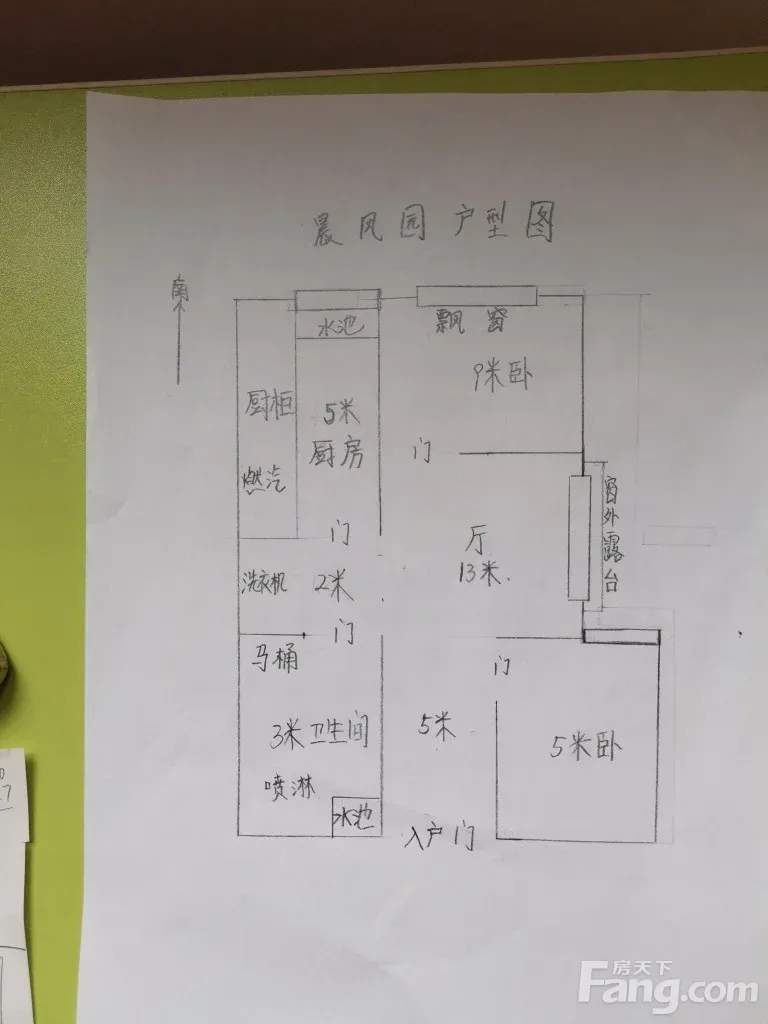 晨风园户型图
南
水池
飘窗
9米卧
厨柜
5米
厨房
门
燃汽
窗外露台
门
厅
13米.
洗衣机
2米
门
马桶
门
3米卫生间
5米
5米卧
喷淋
水池
入户门
7
房天下
Fang.com